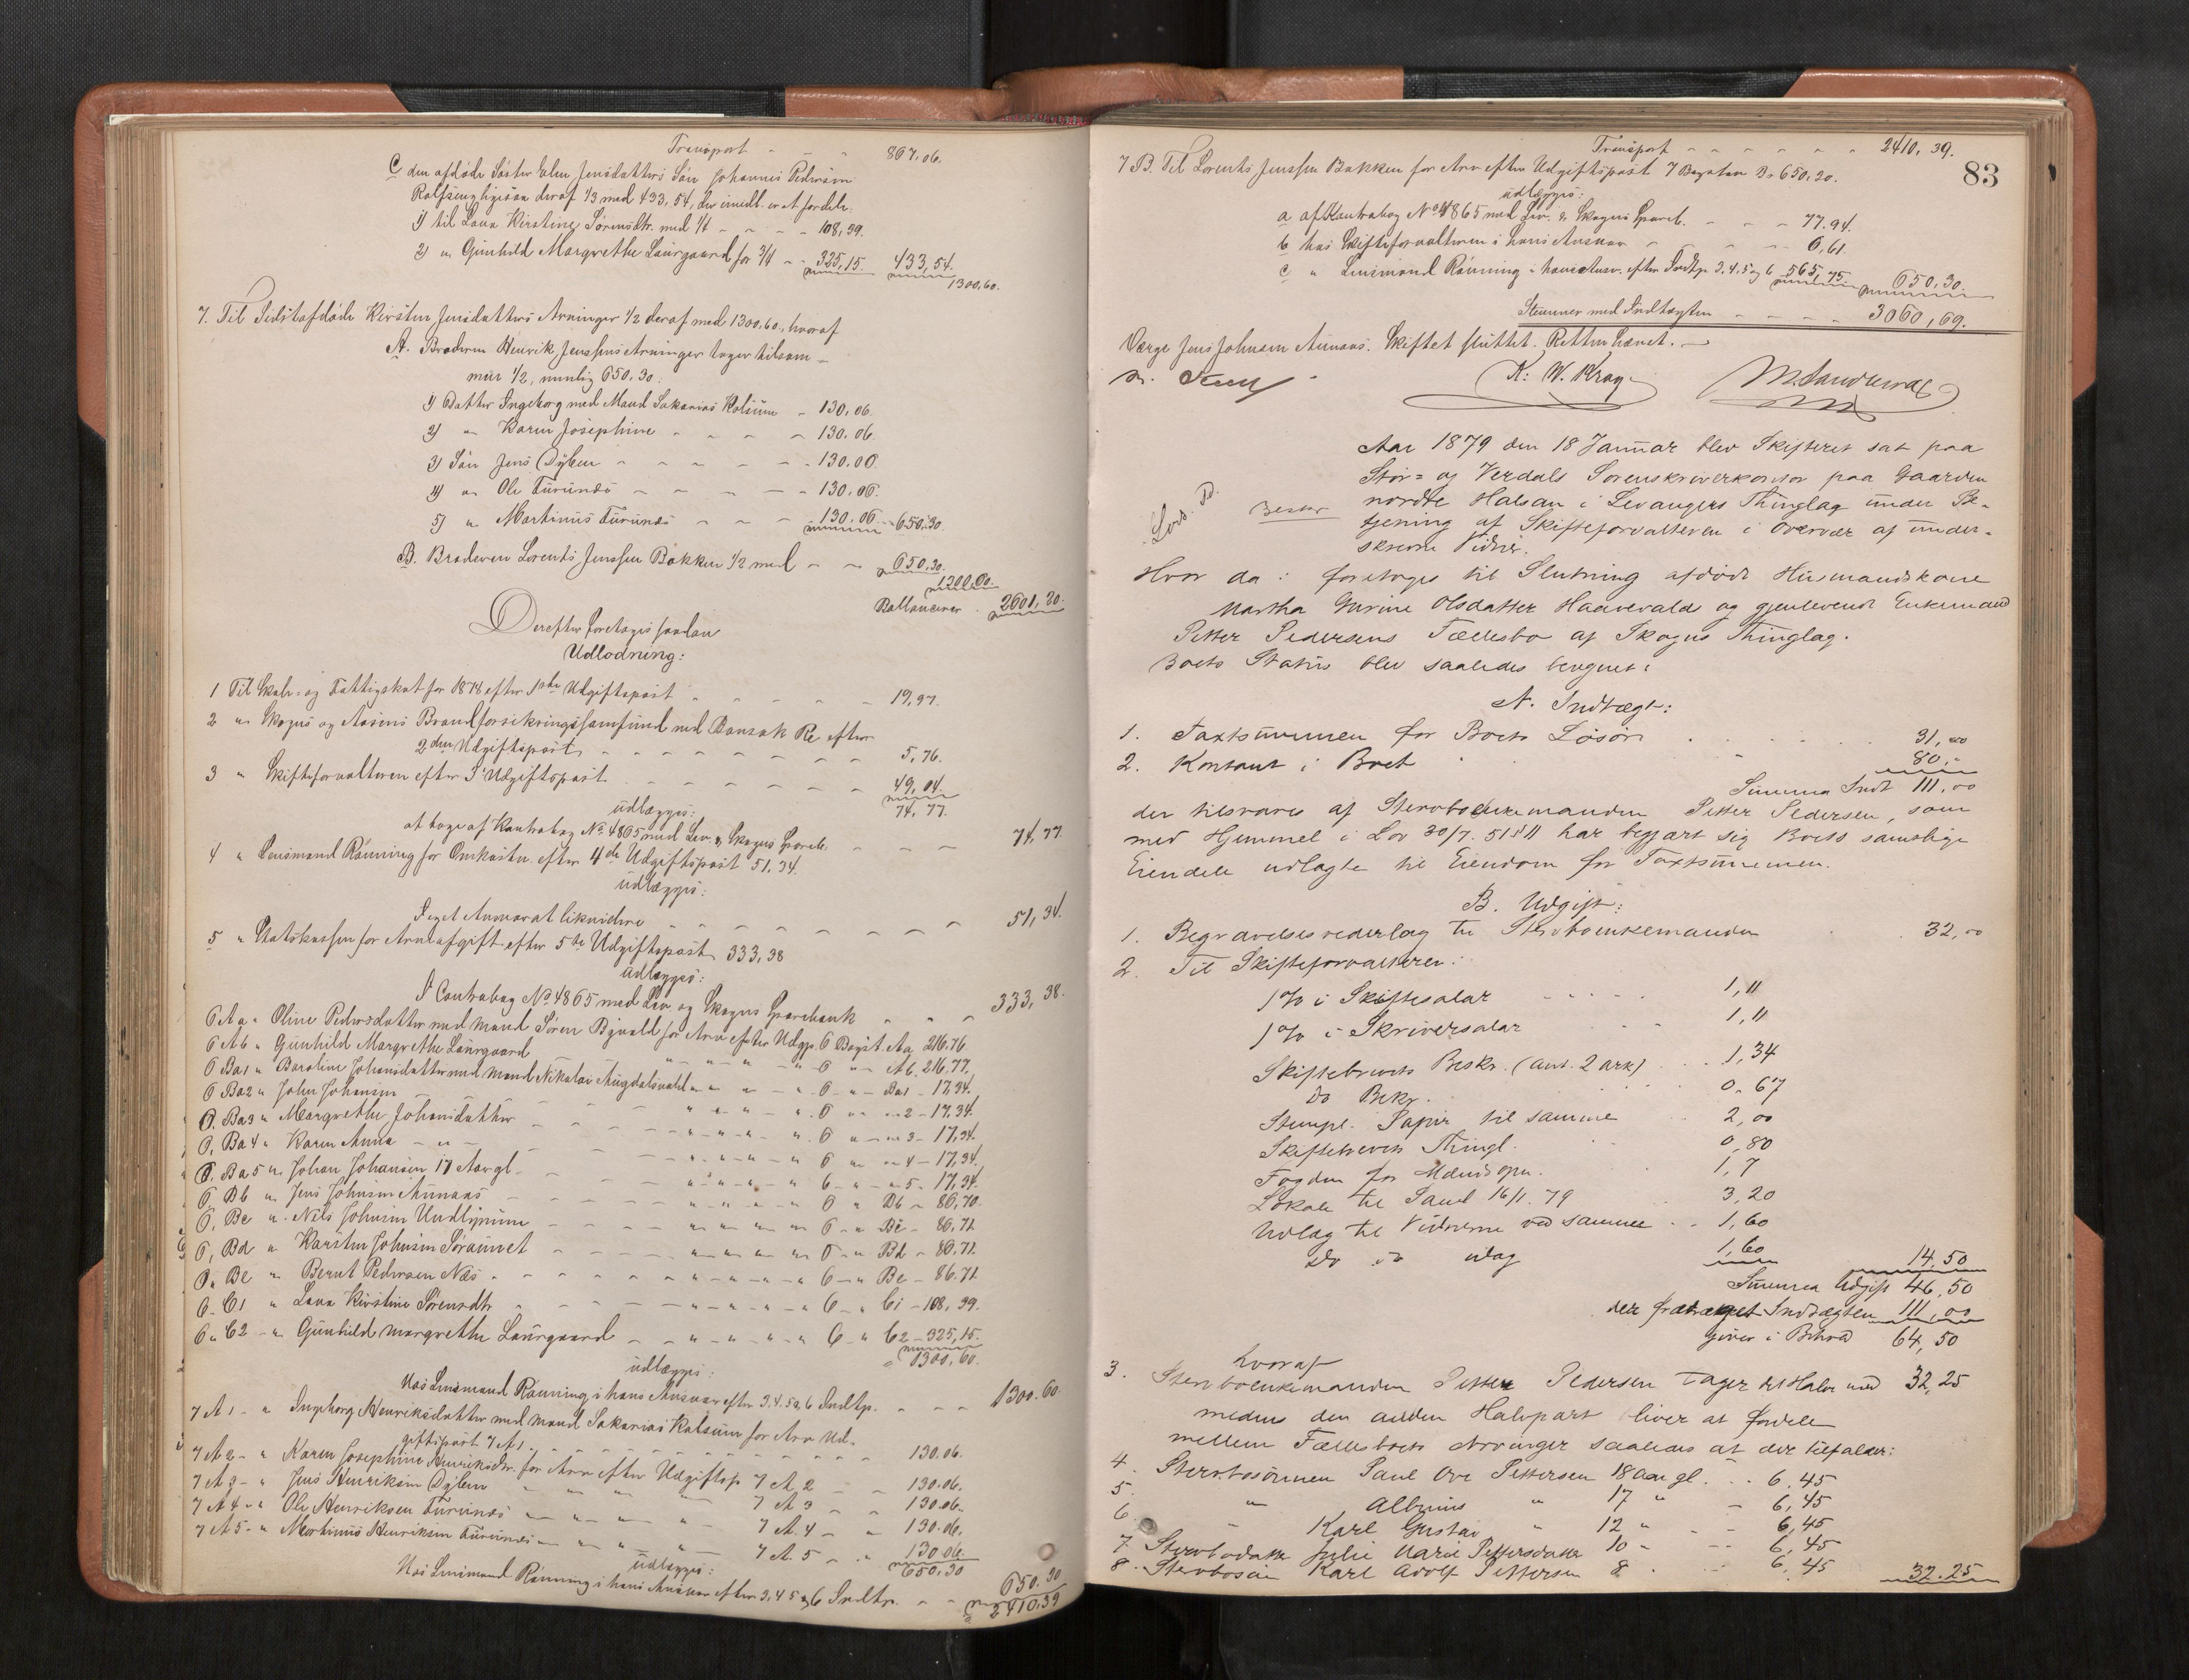 Transport - - - 867,06.
C den afdøde Søster Elen Jensdatters Søn Johannes Pedersen
deraf 1/3 med 433,54, der imedl. er at fordele.
1) til Lava Kirstine Sørensdtr. med 1/4 - - - 108,39.
2) " Gunhild Margrethe Laurgaard for 3/4 - - 325,15. 433,54.
1300,60.
7. Til Sidstafdøde Kirsten Jensdatters Arvinger 1/2 deraf med 1300,60, hvoraf
A. Broderen Henrik Jenssens Arvinger tager tilsam-
men 1/2, nemlig 650,30:
1) Datter Ingeborg med Mand Sakarias Kolsum - 130,06.
2) " Karen Josephine - - - - 130,06.
3) Søn Jens Dylen - - - - - 130,06.
4) " Ole Furunæs - - - - - 130,06.
5) " Martinus Furunæs - - - 130,06. 650,30.
B. Broderen Lorents Jenssen Bakken 1/2 med - - 650,30.
1300,60.
Ballancerer 2601,20.
Derefter foretages saadan
Udlodning:
1 Til Skole- og Fattigskat for 1878 efter 1ste Udgiftspost - - - - - 19,97.
2 " Skogns og Aasens Brandforsikringssamfund ved efter
2den Udgiftspost - - - - - - - 5,76.
3 " Skifteforvalteren efter 3 Udgiftspost - - - - - 49,04.
74,77.
udlægges:
at tage af Kontrabog No 4865 med Lev. & Skogns Spareb. - - - 74,77.
4 " Lensmand Rønning for Omkostn. efter 4de Udgiftspost 51,34.
udlægges:
I eget Ansvar at likvidere - - - - - - - - 51,34.
5 " Statskassen for Arveafgift efter 5te Udgiftspost 333,38
udlægges:
I Contrabog No 4865 med Lev. og Skogns Sparebank - - - 333,38.
6 A a " Oline Pedersdatter med Mand Søren Byvald for Arv efter Udgp. 6 Bogst. Aa 216,76
6 A b " Gunhild Margrethe Laurgaard " - " - " 6 " Ab. 216,77.
6 Ba1 " Baroline Johansdatter med Mand Nikolai Augdalsvald " - " - 6 - " - Ba1 - 17,34.
6 Ba2 " John Johansen - - - " - " - " 6 " - " 2 - 17,34.
6, Ba3 " Margrethe Johansdatter - - - " - " - " 6 " - " 3 - 17,34.
6, Ba4 " Karen Anna - " - - - " - " - " 6 " " 4 - 17,34.
6, Ba5 " Johan Johansen 17 Aar gl. - - " - " - " 6 - " - " 5 - 17,34.
6, Bb " Jens Johnsen Aunaas - - - " - " - " 6 " Bb - 86,70.
6, Bc " Nils Johnsen Undlynum - - - " - " - " 6 - " Bc - 86,71.
6, Bd " Karsten Johnsen Søraunet - - - " - " - " 6 - " Bd - 86,71.
6, Be " Bernt Pedersen Næs - - - " - " - " 6 - " Be - 86,71.
6 - C1 " Lava Kirstine Sørensdtr. - - - " - " - " 6 - " C1 - 108,39.
6 " C2 - " Gunhild Margrethe Laurgaard - - " - " - " 6 - " C2 - 325,15.
1300,60.
udlægges:
Hos Lensmand Rønning i hans Ansvar efter 3.4.5 & 6 Indtp. - - - 1300,60.
7 A 1 - " Ingeborg Henriksdatter med Mand Sakarias Kolsum for Arv Ud-
giftspost 7 A 1. - - - - - - - - 130,06.
7 A 2 - " Karen Josephine Henriksdtr. for Arv efter Udgiftsp. 7 A 2 - - 130,06.
7 A 3 - " Jens Henriksen Dylen " " " " 7 A 3 - - 130,06.
7 A 4 - " Ole Henriksen Furunæs - " - " - " - 7 A. 4 - - 130,06.
7 A 5 - " Martinus Henriksen Furunæs - " - " - " 7 A. 5 - - 130,06.
650,30
udlægges:
Hos Lensmand Rønning i hans Ansvar efter 3,4 5 & 6 Indtp. - - 650,30
2410,39
Transport - - - - - - 2410,39.
83
7 B. Til Lorents Jenssen Bakken for Arv efter Udgiftspost 7 Bogstav B. 650,30.
udlægges:
a af Kontrabog No 4865 med Lev. & Skogns Spareb. - - - 77.94.
b hos Skifteforvalteren i hans Ansvar - - - - - 6,61.
c " Lensmand Rønning i hans Ansv. efter Indtp. 3.4.5 og 6 565,75. 650,30.
Stemmer med Indtægten - - - - 3060,69.
Værge Jens Johnsen Aunaas. Skiftet sluttet. Retten hævet. -
K. W. Krag M. Sandervad
Aar 1879 den 18 Januar blev Skifteret sat paa
Stør- og Verdals Sorenskriverkontor paa Gaarden
nordre Halsan i Levangers Thinglag under Be-
tjening af Skifteforvalteren i Overvær af under-
skrevne Vidner.
Hvor da: foretoges til Slutning afdøde Husmandskone
Martha Gurine Olsdatter Haavevald og gjenlevende Enkemand
Petter Pedersens Fællesbo af Skogns Thinglag.
Boets Status blev saaledes beregnet:
A. Indtægt:
1. Taxtsummen for Boets Løsøre . . . . . 31,00
2. Kontant i Boet . . . 80,-
Summa Indt 111,00
der tilsvares af Sterbboenkemanden Petter Pedersen, som
med Hjemmel i Lov 30/7. 51 § 11 har begjært sig Boets samtlige
Eiendele udlagte til Eiendom for Taxtsummen.
B. Udgift:
1. Begravelsesvederlag til Sterbboenkemanden . 32,00
2. Til Skifteforvalteren:
1% i Skiftesalær - - - - - 1,11
1% i Skriversalær - - 1,11
Skiftebrevets Beskr. (ant. 2 ark) . . 1,34
Do Bekr. 0.67
Stempl. Papir til samme 2,00
Skiftebrevets Thingl. 0,80
Fogden for 1,7
Lokale til Saml 16/1. 79 3,20
Udlæg til Vidnerne ved samme - - 1,60
Do Do idag 1,60 14,50
Summa Udgift 46,50
der fratraget Indtægten 111,00
giver i Behold 64,50
hvoraf
3. Sterbboenkemanden Petter Pedersen tager det Halve med 32,25
medens den anden Halvpart bliver at fordele
mellem Fællesboets Arvinger saaledes at der tilfalder:
4. Sterbbosønnen Paul Ove Pettersen 18 Aar gl. . . 6,45
5. " Albinus " 17 " - 6,45
6. " Karl Gustav " 12 " - - 6,45
7. Sterbbodatter Julie Marie Pettersdatter 10 - - - 6,45
8. Sterbbosøn Karl Adolf Pettersen 8 . - 6,45 32.25